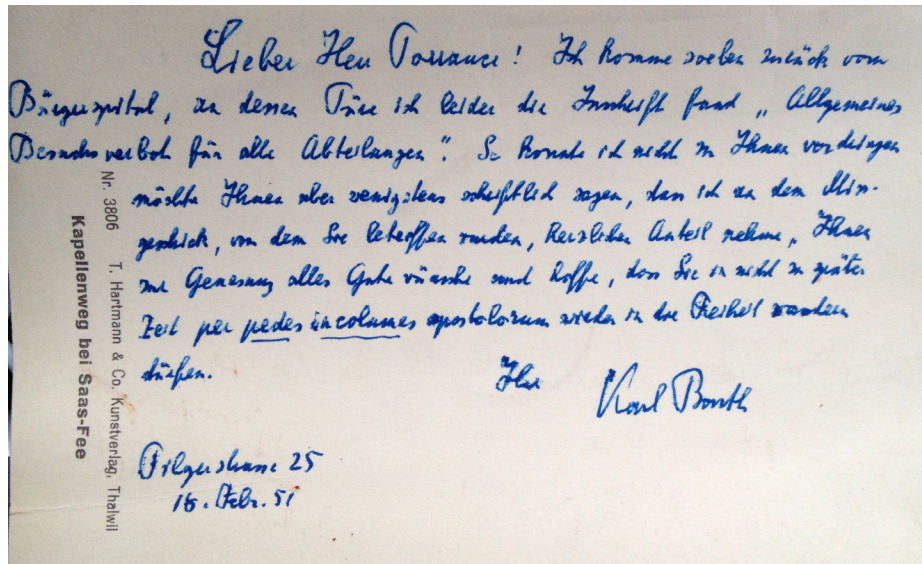 Lieber Herr Torrance! Ich komme soeben zurück vom
Bürgerspital, an dessen Türe ich leider die Inschrift fand „Allgemeines
Besuchsverbot für alle Abteilungen". So konnte ich nicht zu Ihnen vordringen
möchte Ihnen aber wenigstens schriftlich sagen, dass ich an dem Miss-
geschick, von dem Sie betroffen wurden, herzlichen Anteil nehme, Ihnen
zur Genesung alles Gute wünsche und hoffe, dass Sie in nicht zu später
Zeit per pedes incolumes apostolorum wieder in die Freiheit wandern
dürfen.
Ihr Karl Barth
Pilgerstrasse 25
16. Febr. 51
Nr. 3806 T. Hartmann & Co. Kunstverlag, Thalwil
Kapellenweg bei Saas-Fee